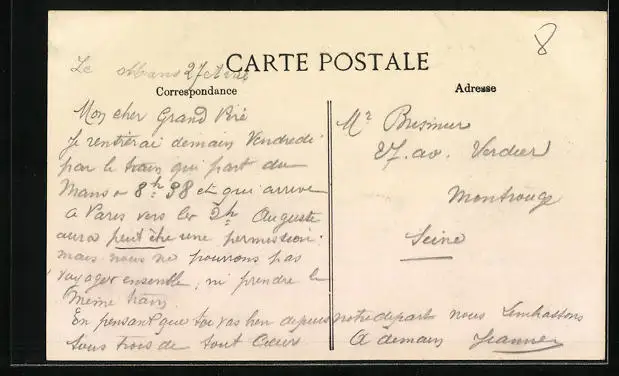 8
CARTE POSTALE
Le Mans 27 Avril
Correspondance
Adresse
Mon cher Grand Père
Je rentrerai demain Vendredi
par le train qui part du
Mans a 8h 38 et qui arrive
a Paris vers les 2h Auguste
aura peut être une permission.
mais nous ne pouvons pas
voyager ensemble, ni prendre le
même train.
En pensant que toi vas bien depuis notre depart nous t'embrassons
tous trois de tout Cœur A demain Jeanne
Mr
87. av. Verdier
Montrouge
Seine